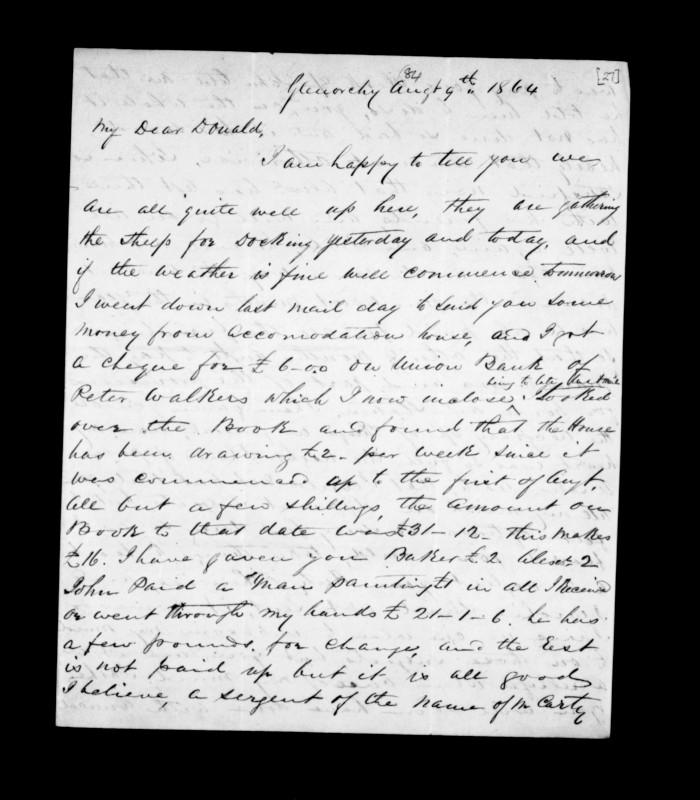 [27]
84
Glenorchy Augt 9th 1864
My Dear Donald,
I am happy to tell you we
are all quite well up here, they are gathering
the sheep for Docking yesterday and today, and
if the weather is fine will commence tomorrow
I went down last mail day to send you some
money from accomodation house, and I got
a cheque for £6-0.0 on Union Bank of
Peter Walkers which I now inclose. being to late that mail
Looked
over the Book and found that the House
has been drawing £2- per week since it
was commenced up to the first of Augt.
all but a few shillings, the amount on
Book to that date was £31-12- this makes
£16. I have given you Baker £2 2
John Paid a man painting £1 in all I Received
or went through my hands £21-1-6. he has
a few pounds for change, and the Rest
is not paid up but it is all good
I believe, a sergent of the name of McCarty